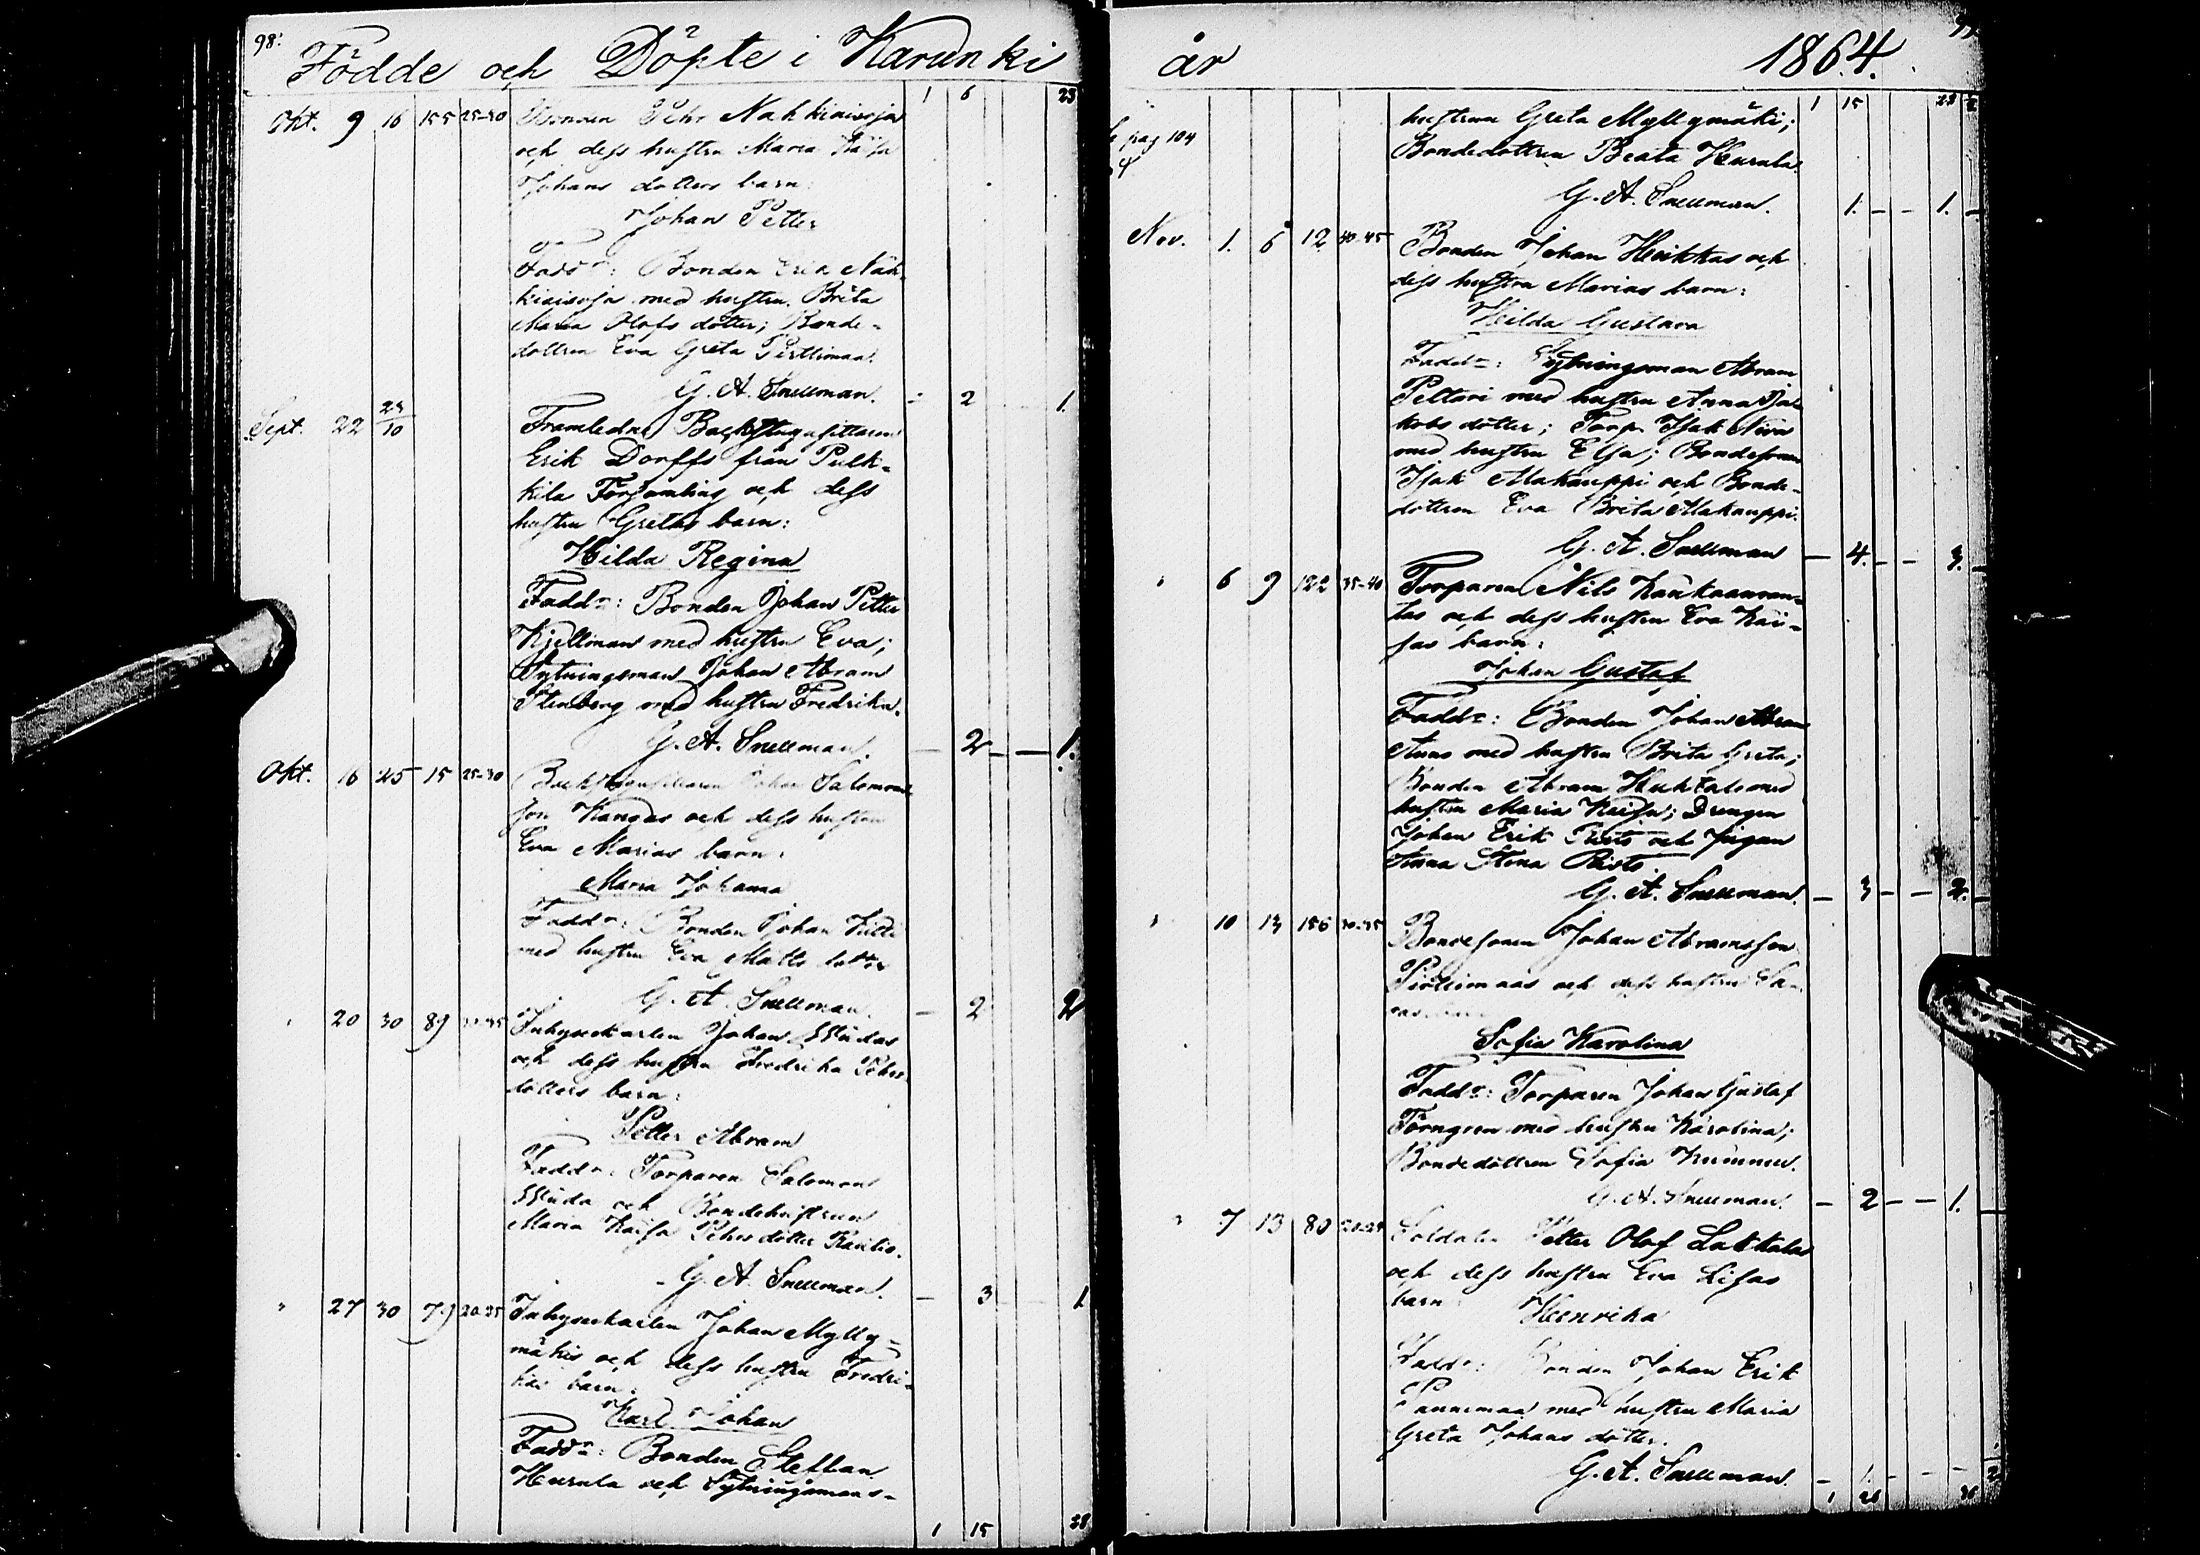 98.
Födde och Döpte i Karunki
1 6 23
Okt. 9 16 155 25-30 Bonden Pehr Nahkiaisoja
och dess hustru Maria Kaisa
Johans dotters barn:
Johan Petter
Faddr: Bonden Erik Nah-
kiaisoja med hustru Brita
Maria Olofs dotter; Bonde-
dottren Eva Greta Pirttimaa.
G. A. Snellman. - 2 1.
Sept. 22 29/10 Framledne Backstugusittaren
Erik Dorffs från Pulk-
kila Församling och dess
hustru Gretas barn:
Hilda Regina
Faddr: Bonden Johan Petter
Kjellman med hustru Eva;
Sytningsman Johan Abram
Stenberg med hustru Fredrika.
G. A. Snellman. - 2 - - 1.
Okt. 16 25 15 25-30 Backstugusittaren Johan Salomons-
son Kangas och dess hustru
Eva Marias barn:
Maria Johanna
Faddr: Bonden Johan
med hustru Eva Matts dotter
G. A. Snellman. - 2 2
" 20 30 89 30-35 Inhysekarlen Johan
och dess hustru Fredrika Pehrs-
dotters barn:
Petter Abram
Faddr: Torparen Salomon
och Bondehustrun
Maria Kaisa Pehrs dotter
G. A. Snellman. - 3 1
" 27 30 79 20-25 Inhysekarlen Johan Mylly-
mäkis och dess hustru Fredri-
kas barn:
Karl Johan
Faddr: Bonden Steffan
Hurula och Sytningsmans-
1 15 28
år 1864. 99.
1 15 28 2
pag 104
hustrun Greta Myllymäki;
Bondedottren Beata Hurula.
G. A. Snellman. 1. - - 1. -
Nov. 1. 6 12 40-45 Bonden Johan Heikkas och
dess hustru Marias barn:
Hilda Gustava
Faddr: Sytningsman Abram
Peltari med hustru Anna Ja-
kobs dotter; Torp. Isak Niva
med hustru Elsa; Bondesonen
Isak Alakauppi och Bonde-
dottren Eva Brita Alakauppi.
G. A. Snellman - 4. - - 3. -
" 6 9 122 35-40 Torparen Nils Kankaanran-
tas och dess hustru Eva Kai-
sas barn:
Johan Gustaf
Faddr: Bonden Johan Abram
med hustru Brita Greta;
Bonden Abram Huhtala med
hustru Maria Kaisa; Drengen
Johan Erik Pisto och Pigan
Anna Stina
G. A. Snellman. - 3 - - 2. -
" 10 13 156 30-35 Bondesonen Johan Abramsson
Pirttimaas och dess hustru Sa-
ras barn
Sofia Karolina
Faddr: Torparen Johan Gustaf
Törngren med hustru Karolina;
Bondedottren Sofia
G. A. Snellman. - 2 - - 1. -
" 7 13 80 Soldaten Petter Olof Lakkala
och dess hustru Eva Lisas
barn: Henrika
Faddr: Bonden Johan Erik
Pannimaa med hustru Maria
Greta Johans dotter.
G. A. Snellman. - 1. - - - 2
1 26 36